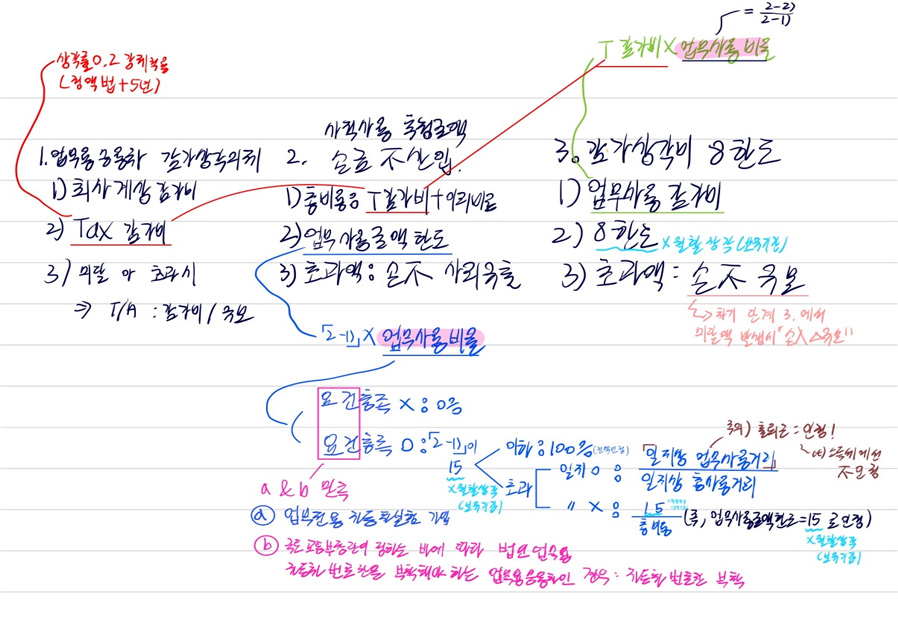 = 2-2) / 2-1)
T 감가비 X 업무사용비율
상각률 0.2 강제적용
(정액법 + 5년)
1. 업무용승용차 감가상각의제
1) 회사계상 감가비
2) Tax 감가비
3) 미달 or 초과시
⇒ T/A : 감가비 / 유보
사적사용 추정금액
2. 손금 不산입.
1) 총비용 : T감가비 + 이외비용
2) 업무사용금액 한도
3) 초과액 : 손不 사외유출
「2-1)」 X 업무사용비율
3. 감가상각비 8한도
1) 업무사용 감가비
2) 8한도 X 월할상각 (보유기준)
3) 초과액 = 손不 유보
↳ 차기 단계 3. 에서
미달액 발생시 "손入 △유보"
요건충족 X : 0%
요건충족 O : 「2-1)」이
15
X 월할상각
(보유기준)
이하 : 100%
초과
일지 O : 「일지상 업무사용거리」 / 일지상 총사용거리
〃 X : 15 / 총비용 (즉, 업무사용금액한도 = 15 로 인정)
X 월할상각
(보유기준)
주의) 출퇴근 = 인정!
소득세에선
不인정
a & b 만족
ⓐ 업무전용 자동차보험 가입
ⓑ 국토교통부장관이 정하는 바에 따라 법인업무용
자동차 번호판을 부착해야 하는 업무용승용차인 경우 : 자동차 번호판 부착